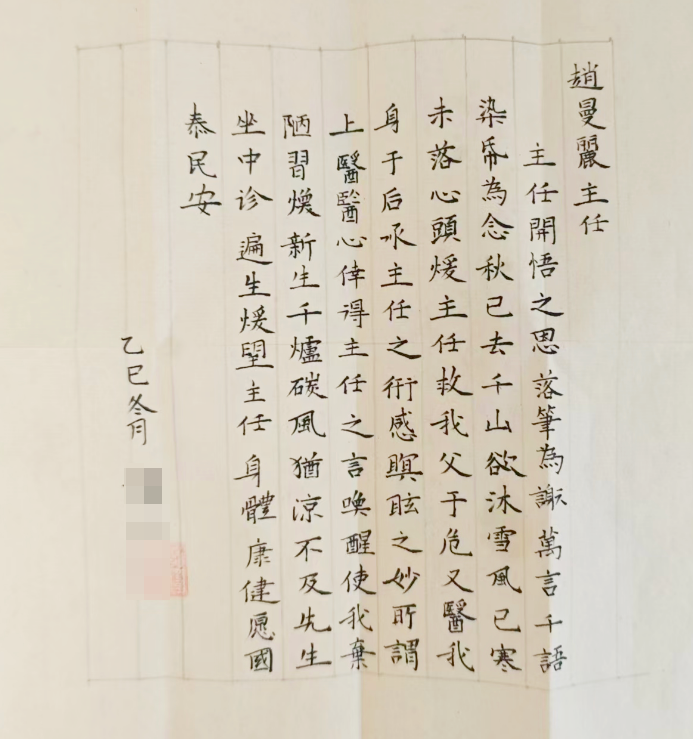 趙曼麗主任
主任開悟之思落筆為謝萬言千語
染帋為念秋已去千山欲沐雪風已寒
未落心頭煖主任救我父于危又醫我
身于后承主任之術感瞑眩之妙所謂
上醫醫心倖得主任之言喚醒使我棄
陋習煥新生千爐碳風猶涼不及先生
坐中诊遍生煖朢主任身體康健愿國
泰民安
乙巳冬月